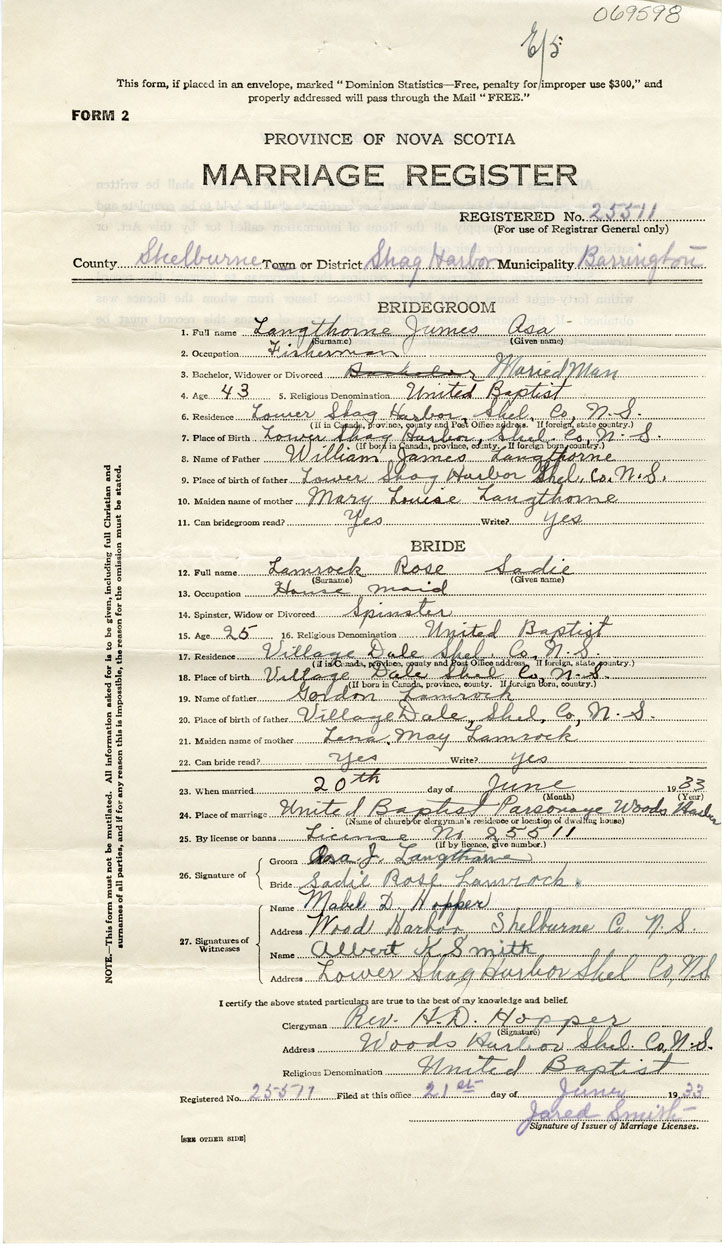 069598
E/5
This form, if placed in an envelope, marked "Dominion Statistics—Free, penalty for improper use $300," and
properly addressed will pass through the Mail "FREE."
FORM 2
PROVINCE OF NOVA SCOTIA
MARRIAGE REGISTER
REGISTERED No. 25511
(For use of Registrar General only)
County Shelburne Town or District Shag Harbor Municipality Barrington
BRIDEGROOM
1. Full name Langthorne James Asa
(Surname) (Given name)
2. Occupation Fisherman
3. Bachelor, Widower or Divorced Bachelor Maried Man
4. Age 43 5. Religious Denomination United Baptist
6. Residence Lower Shag Harbor, Shel. Co, N.S.
(If in Canada, province, county and Post Office address. If foreign, state country.)
7. Place of Birth Lower Shag Harbor, Shel. Co, N.S.
(If born in Canada, province, county. If foreign born, country.)
8. Name of Father William James Langthorne
9. Place of birth of father Lower Shag Harbor Shel. Co. N.S.
10. Maiden name of mother Mary Louise Langthorne
11. Can bridegroom read? Yes Write? Yes
BRIDE
12. Full name Lamrock Rose Sadie
(Surname) (Given name)
13. Occupation House maid
14. Spinster, Widow or Divorced Spinster
15. Age 25 16. Religious Denomination United Baptist
17. Residence Village Dale Shel. Co, N.S.
(If in Canada, province, county and Post Office address. If foreign, state country.)
18. Place of birth Village Dale Shel Co, N.S.
(If born in Canada, province, county. If foreign born, country.)
19. Name of father Gordon Lamrock
20. Place of birth of father Village Dale, Shel, Co, N.S.
21. Maiden name of mother Lena May Lamrock
22. Can bride read? Yes Write? Yes
23. When married 20th day of June 1933
(Month) (Year)
24. Place of marriage United Baptist Parsonage Woods Harbor
(Name of church or clergyman's residence or location of dwelling house)
25. By license or banns License No. 25511
(If by licence, give number.)
26. Signature of
Groom Asa J. Langthorne
Bride Sadie Rose Lamrock.
27. Signatures of Witnesses
Name Mabel D. Hopper
Address Wood Harbor, Shelburne Co. N.S.
Name Albert K Smith
Address Lower Shag Harbor Shel Co, NS
I certify the above stated particulars are true to the best of my knowledge and belief.
Clergyman Rev. H.D. Hopper
(Signature)
Address Woods Harbor Shel. Co, N.S.
Religious Denomination United Baptist
Registered No. 25511 Filed at this office 21st day of June 1933
Jared Smith
Signature of Issuer of Marriage Licenses.
[SEE OTHER SIDE]
NOTE.—This form must not be mutilated. All information asked for is to be given, including full Christian and
surnames of all parties, and if for any reason this is impossible, the reason for the omission must be stated.